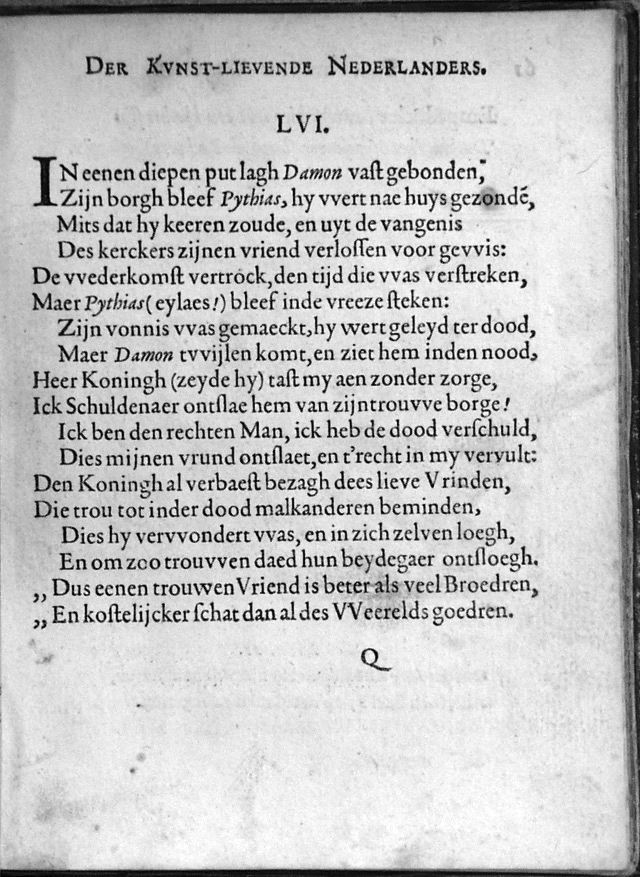 DER KVNST-LIEVENDE NEDERLANDERS.
LVI.
IN eenen diepen put lagh Damon vaſt gebonden,
Zijn borgh bleef Pythias, hy vvert nae huys gezondē,
Mits dat hy keeren zoude, en uyt de vangenis
Des kerckers zijnen vriend verloſſen voor gevvis:
De vvederkomſt vertrock, den tijd die vvas verſtreken,
Maer Pythias (eylaes!) bleef inde vreeze ſteken:
Zijn vonnis vvas gemaeckt, hy wert geleyd ter dood,
Maer Damon tvvijlen komt, en ziet hem inden nood,
Heer Koningh (zeyde hy) taſt my aen zonder zorge,
Ick Schuldenaer ontſlae hem van zijn trouvve borge!
Ick ben den rechten Man, ick heb de dood verſchuld,
Dies mijnen vrund ontſlaet, en t'recht in my vervult:
Den Koningh al verbaeſt bezagh dees lieve Vrinden,
Die trou tot inder dood malkanderen beminden,
Dies hy vervvondert vvas, en in zich zelven loegh,
En om zoo trouvven daed hun beydegaer ontſloegh.
„ Dus eenen trouwen Vriend is beter als veel Broedren,
„ En koſtelijcker ſchat dan al des VVeerelds goedren.
Q